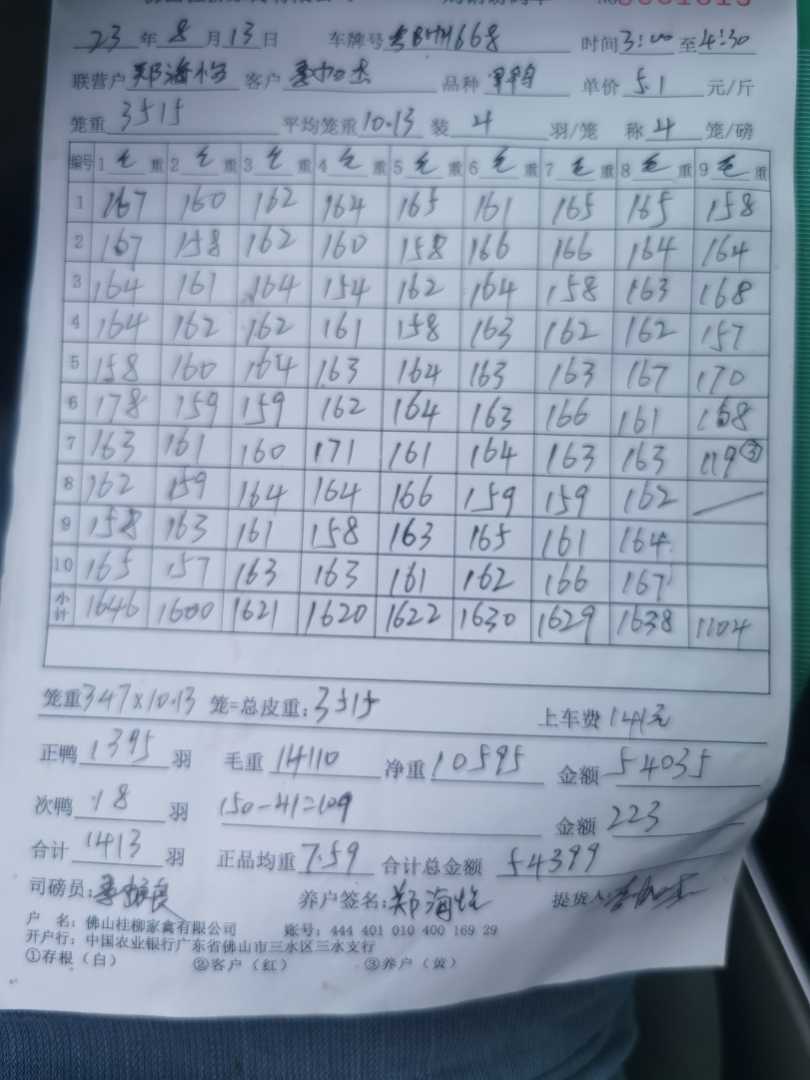 23年8月13日 车牌号 668 时间3:00至4:30
联营户 郑海 客户 品种 单价 5.1 元/斤
笼重 3515 平均笼重10.13 装 4 羽/笼 称 4 笼/磅
编号 1 毛 重 2 毛 重 3 毛 重 4 毛 重 5 毛 重 6 毛 重 7 毛 重 8 毛 重 9 毛 重
1 167 160 162 164 165 161 165 165 158
2 167 158 162 160 158 166 166 164 164
3 164 161 164 154 162 164 158 163 168
4 164 162 162 161 158 163 162 162 157
5 158 160 164 163 164 163 163 167 170
6 178 159 159 162 164 163 166 161 168
7 163 161 160 171 161 164 163 163 119③
8 162 159 164 164 166 159 159 162 —
9 158 163 161 158 163 165 161 164
10 165 157 163 163 161 162 166 167
小计 1646 1600 1621 1620 1622 1630 1629 1638 1104
笼重347×10.13 笼=总皮重:3515 上车费141元
正鸭 1395 羽 毛重 14110 净重 10595 金额 54035
次鸭 18 羽 150-41=109 金额 223
合计 1413 羽 正品均重 7.59 合计总金额 54399
司磅员: 养户签名:郑海 提货人:
户 名:佛山桂柳家禽有限公司 账号:444 401 010 400 169 29
开户行:中国农业银行广东省佛山市三水区三水支行
①存根(白) ②客户(红) ③养户(黄)